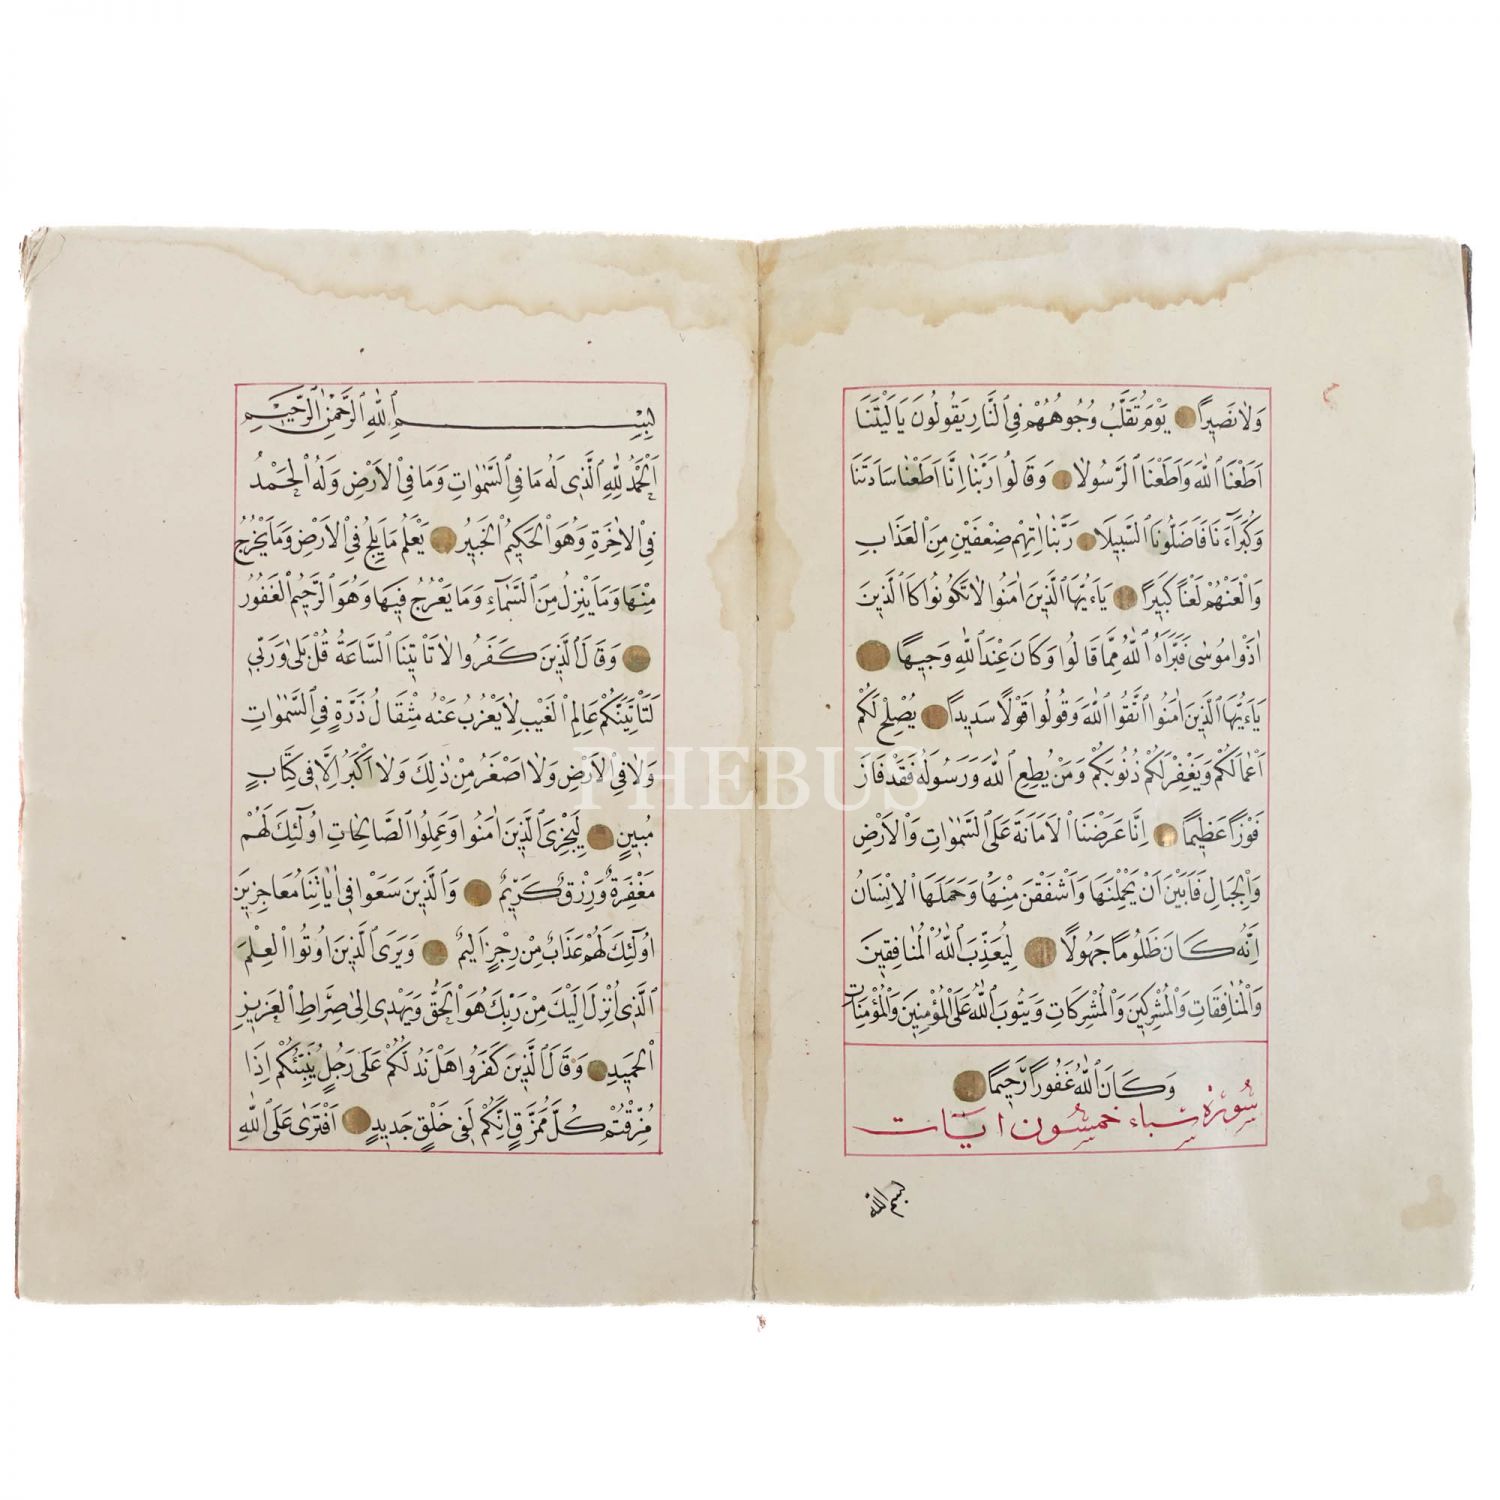 وَلَا نَصِيرًا يَوْمَ تُقَلَّبُ وُجُوهُهُمْ فِي النَّارِ يَقُولُونَ يَا لَيْتَنَا
اَطَعْنَا اللّٰهَ وَاَطَعْنَا الرَّسُولَا وَقَالُوا رَبَّنَا اِنَّا اَطَعْنَا سَادَتَنَا
وَكُبَرَآءَنَا فَاَضَلُّونَا السَّبِيلَا رَبَّنَا اٰتِهِمْ ضِعْفَيْنِ مِنَ الْعَذَابِ
وَالْعَنْهُمْ لَعْنًا كَبِيرًا يَآءَيُّهَا الَّذِينَ اٰمَنُوا لَا تَكُونُوا كَالَّذِينَ
اٰذَوْا مُوسٰى فَبَرَّاَهُ اللّٰهُ مِمَّا قَالُوا وَكَانَ عِنْدَ اللّٰهِ وَجِيهًا
يَآءَيُّهَا الَّذِينَ اٰمَنُوا اتَّقُوا اللّٰهَ وَقُولُوا قَوْلًا سَدِيدًا يُصْلِحْ لَكُمْ
اَعْمَالَكُمْ وَيَغْفِرْ لَكُمْ ذُنُوبَكُمْ وَمَنْ يُطِعِ اللّٰهَ وَرَسُولَهُ فَقَدْ فَازَ
فَوْزًا عَظِيمًا اِنَّا عَرَضْنَا الْاَمَانَةَ عَلَى السَّمٰوَاتِ وَالْاَرْضِ
وَالْجِبَالِ فَاَبَيْنَ اَنْ يَحْمِلْنَهَا وَاَشْفَقْنَ مِنْهَا وَحَمَلَهَا الْاِنْسَانُ
اِنَّهُ كَانَ ظَلُومًا جَهُولًا لِيُعَذِّبَ اللّٰهُ الْمُنَافِقِينَ
وَالْمُنَافِقَاتِ وَالْمُشْرِكِينَ وَالْمُشْرِكَاتِ وَيَتُوبَ اللّٰهُ عَلَى الْمُؤْمِنِينَ وَالْمُؤْمِنَاتِ
وَكَانَ اللّٰهُ غَفُورًا رَحِيمًا
سورة سباء خمسون ايات
بسم الله
بِسْمِ اللّٰهِ الرَّحْمٰنِ الرَّحِيمِ
اَلْحَمْدُ لِلّٰهِ الَّذِي لَهُ مَا فِي السَّمٰوَاتِ وَمَا فِي الْاَرْضِ وَلَهُ الْحَمْدُ
فِي الْاٰخِرَةِ وَهُوَ الْحَكِيمُ الْخَبِيرُ يَعْلَمُ مَا يَلِجُ فِي الْاَرْضِ وَمَا يَخْرُجُ
مِنْهَا وَمَا يَنْزِلُ مِنَ السَّمَآءِ وَمَا يَعْرُجُ فِيهَا وَهُوَ الرَّحِيمُ الْغَفُورُ
وَقَالَ الَّذِينَ كَفَرُوا لَا تَاْتِينَا السَّاعَةُ قُلْ بَلٰى وَرَبِّي
لَتَاْتِيَنَّكُمْ عَالِمِ الْغَيْبِ لَا يَعْزُبُ عَنْهُ مِثْقَالُ ذَرَّةٍ فِي السَّمٰوَاتِ
وَلَا فِي الْاَرْضِ وَلَا اَصْغَرُ مِنْ ذٰلِكَ وَلَا اَكْبَرُ اِلَّا فِي كِتَابٍ
مُبِينٍ لِيَجْزِيَ الَّذِينَ اٰمَنُوا وَعَمِلُوا الصَّالِحَاتِ اُولٰٓئِكَ لَهُمْ
مَغْفِرَةٌ وَرِزْقٌ كَرِيمٌ وَالَّذِينَ سَعَوْا فِي اٰيَاتِنَا مُعَاجِزِينَ
اُولٰٓئِكَ لَهُمْ عَذَابٌ مِنْ رِجْزٍ اَلِيمٌ وَيَرَى الَّذِينَ اُوتُوا الْعِلْمَ
الَّذِي اُنْزِلَ اِلَيْكَ مِنْ رَبِّكَ هُوَ الْحَقَّ وَيَهْدِي اِلٰى صِرَاطِ الْعَزِيزِ
الْحَمِيدِ وَقَالَ الَّذِينَ كَفَرُوا هَلْ نَدُلُّكُمْ عَلٰى رَجُلٍ يُنَبِّئُكُمْ اِذَا
مُزِّقْتُمْ كُلَّ مُمَزَّقٍ اِنَّكُمْ لَفِي خَلْقٍ جَدِيدٍ اَفْتَرٰى عَلَى اللّٰهِ
PHEBUS